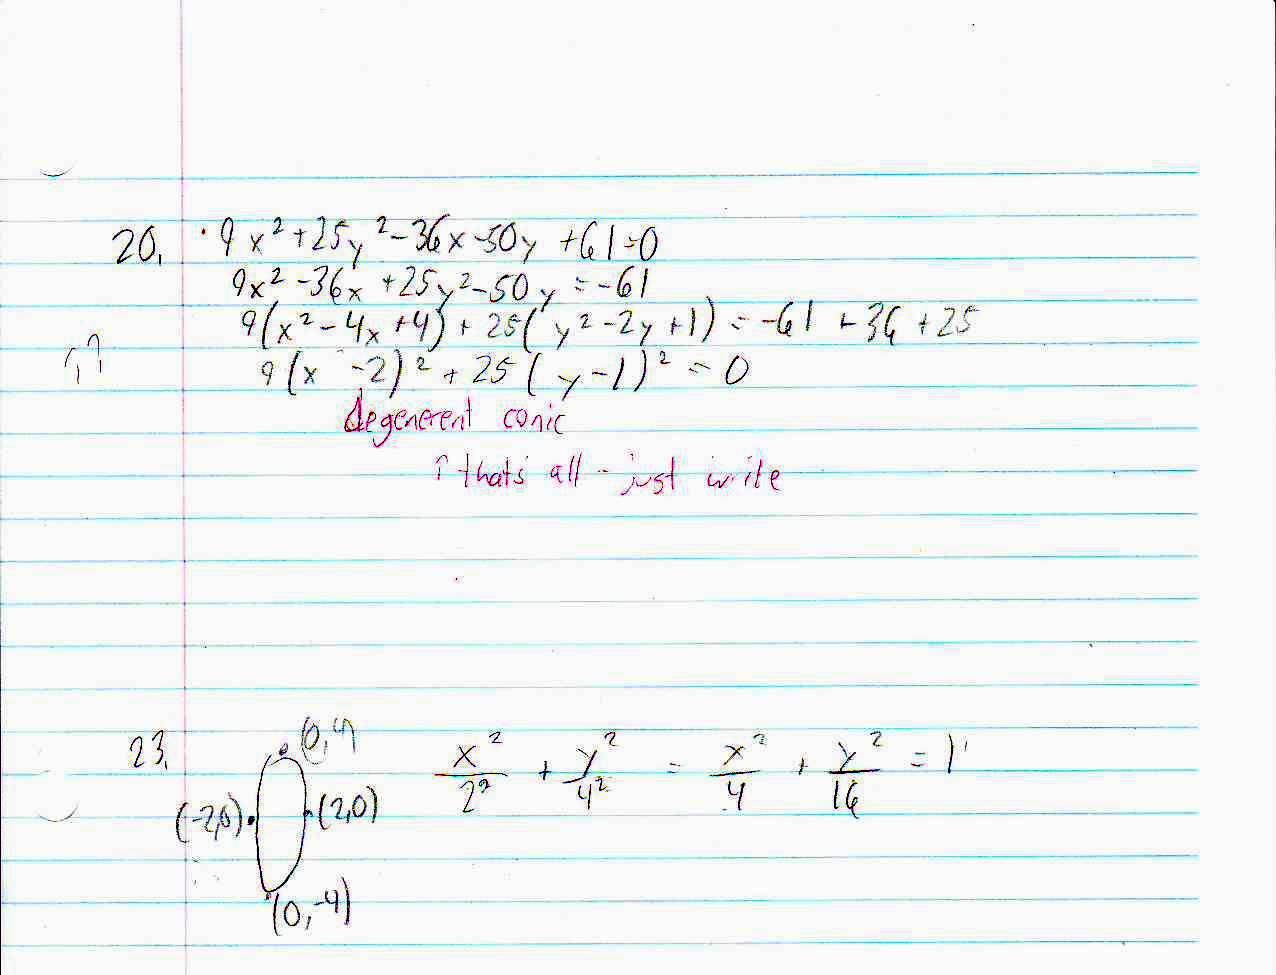 20. 9x² + 25y² - 36x - 50y + 61 = 0
9x² - 36x + 25y² - 50y = -61
9(x² - 4x + 4) + 25(y² - 2y + 1) = -61 + 36 + 25
9(x - 2)² + 25(y - 1)² = 0
degenerent conic
↑ thats all - just write
23. (0,4)
x²/2² + y²/4² = x²/4 + y²/16 = 1
(-2,0) (2,0)
(0,-4)